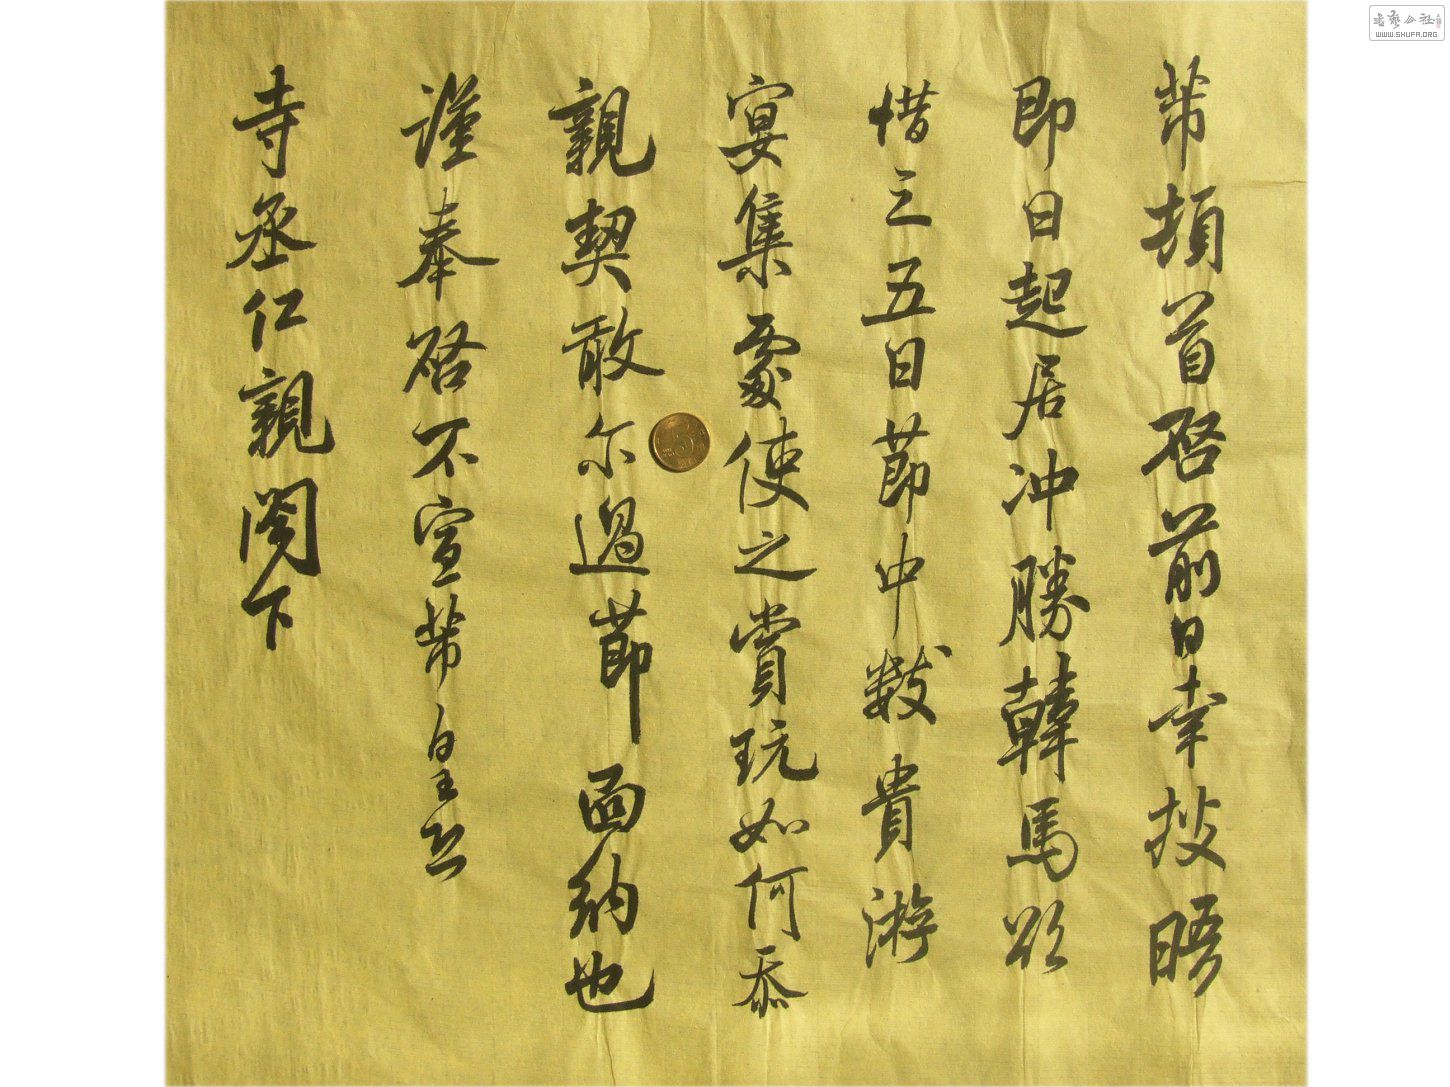 芾頓首啓前日幸披晤
即日起居冲勝韓馬欲
惜三五日節中數貴游
宴集處使之賞玩如何忝
親契敢尔過節面納也
謹奉啓不宣芾皇恐
寺丞仁親閣下
5
WWW.SHUFA.ORG